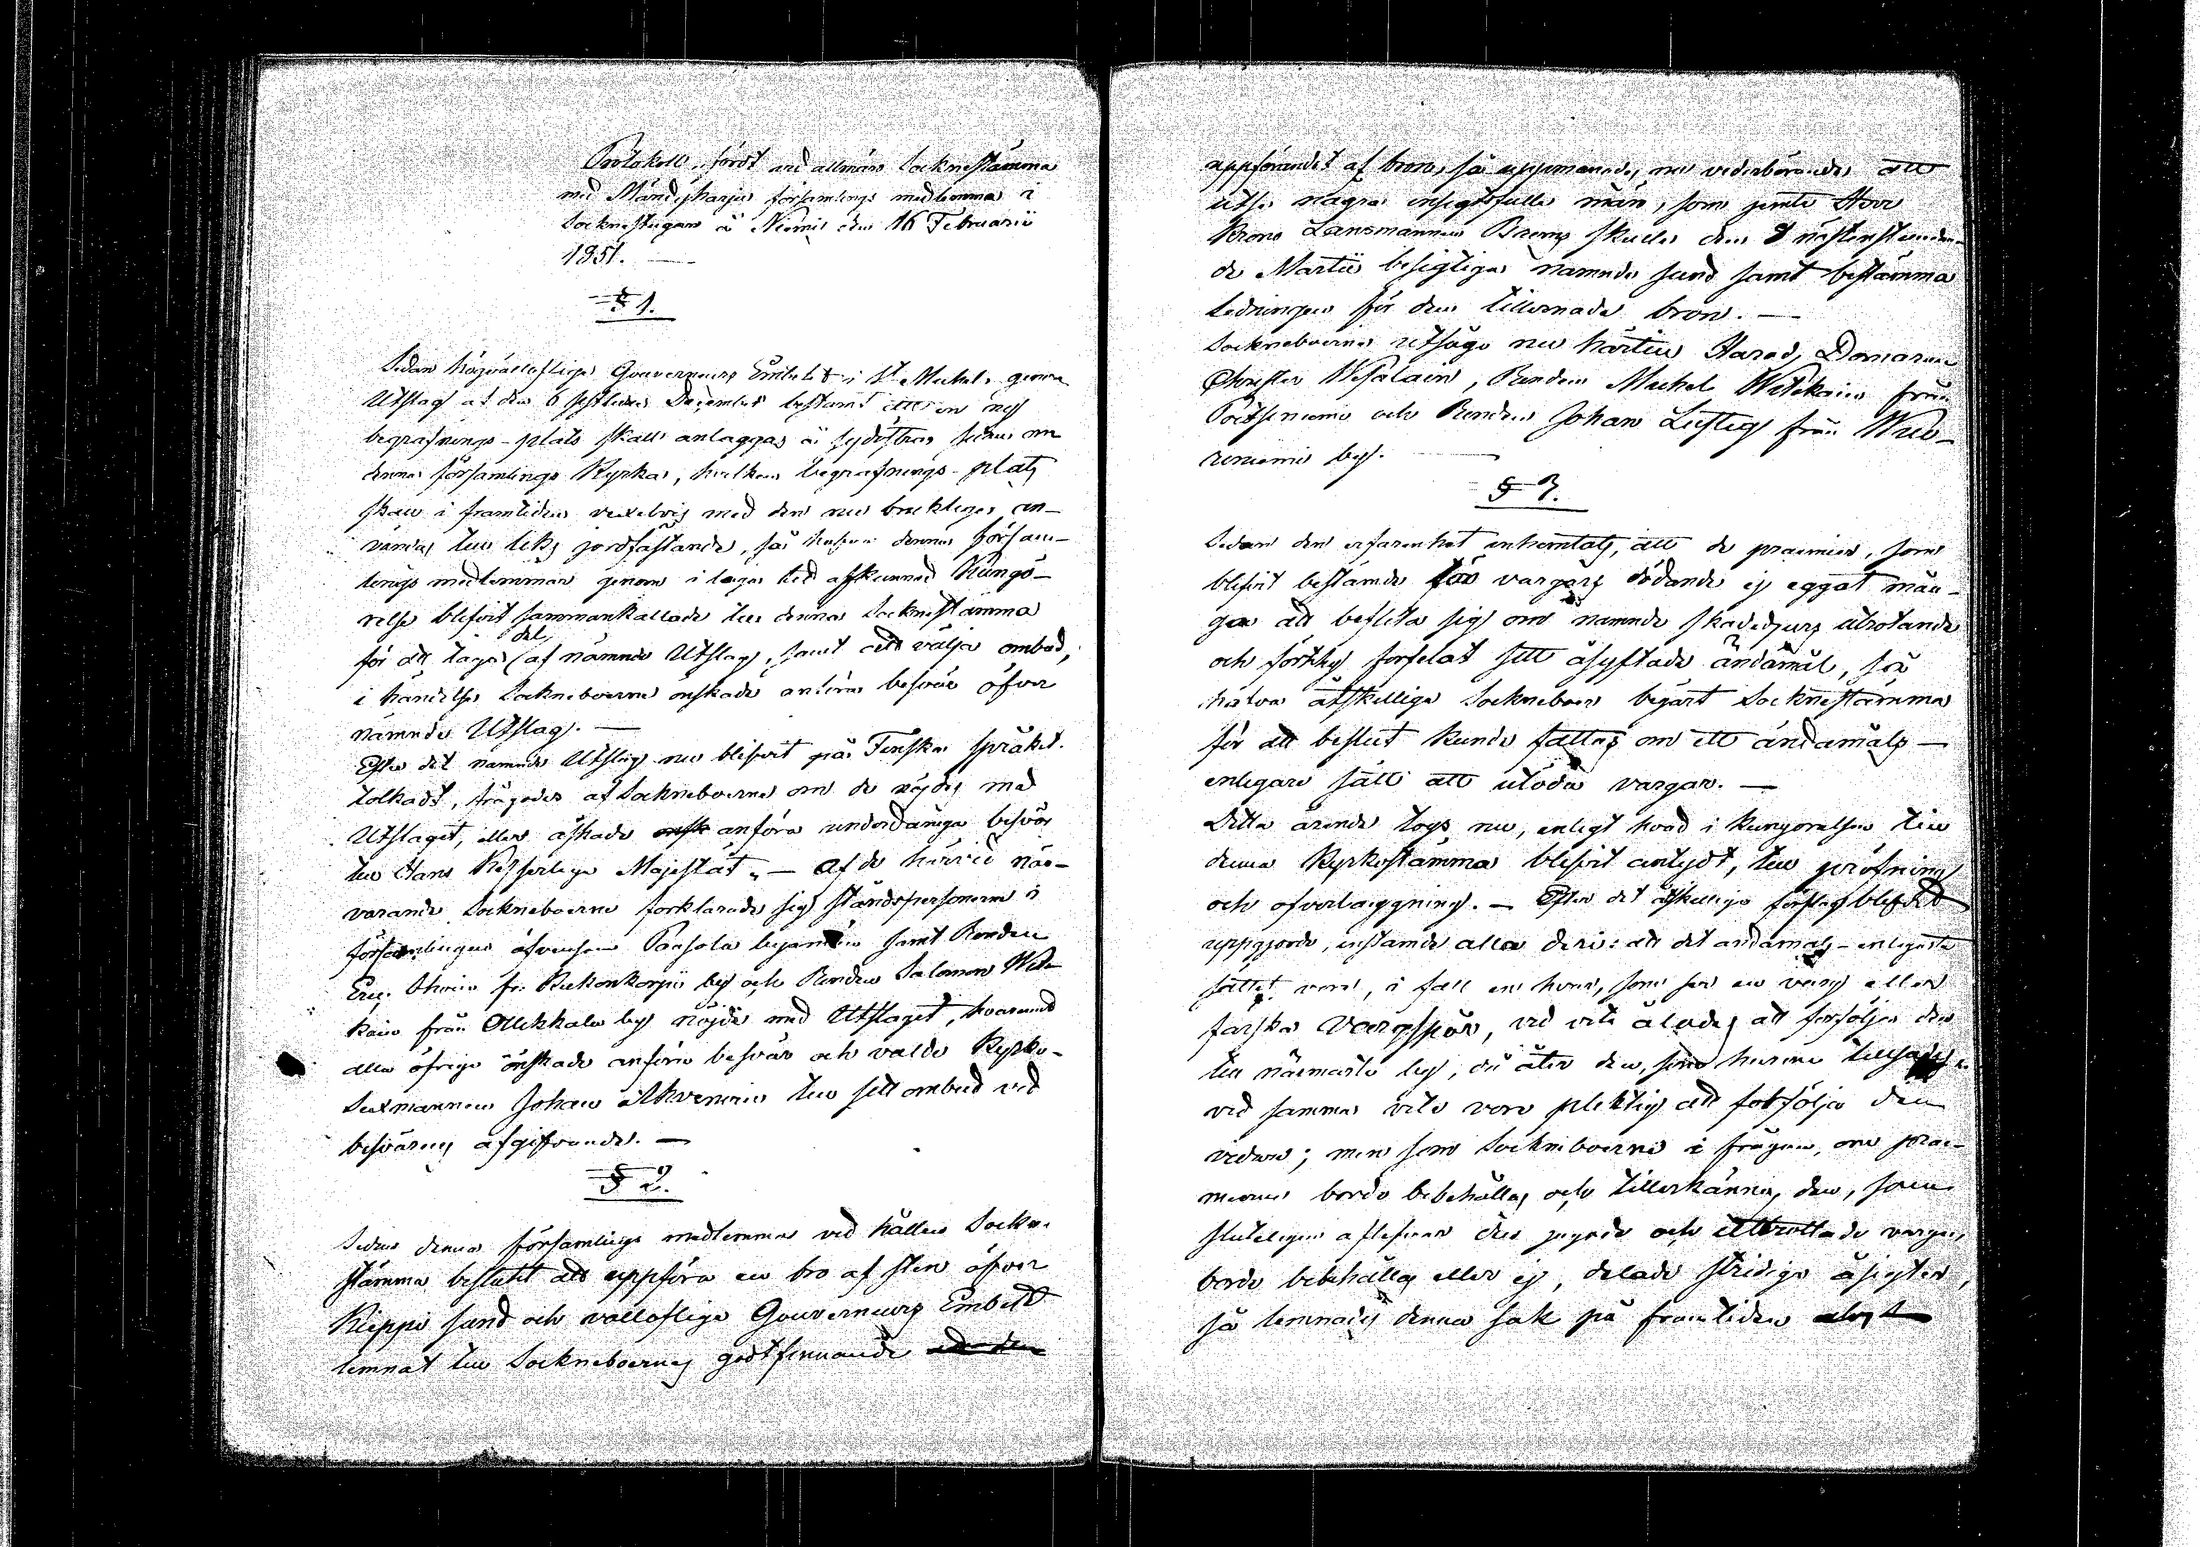 Protokoll, fördt vid allmän Socknestämma
med Mändyharju församlings medlemmar i
Sockenstugan å Niemis den 16 Februarii
1851. —
§ 1.
Sedan högvällofliga Gouverneurs Embetet i St Michel, genom
Utslag af den 6 sistledne December bestämt att en ny
begrafnings-plats skall anläggas å sydöstra sidan om
denna församlings Kyrka, hvilken begrafnings-plats
skall i framtiden vexelvis med den nu brukliga an-
vändas till liks jordfästande, så hafva denna försam-
lings medlemmar genom i laga tid afkunnad Kungö-
relse blifvit sammankallade till denna Socknestämma
för att taga del af nämnde Utslag, samt att välja ombud,
i händelse Sockneboerne önskade anföra besvär öfver
nämnde Utslag. —
Efter det nämnde Utslag nu blifvit på Finska språket
tolkadt, frågades af Sockneboerne om de nöjdes med
Utslaget, eller åskade önsk anföra underdåniga besvär
till Hans Kejserliga Majestät. — Af de härvid när-
varande Sockneboerne förklarade sig ståndspersonerne i
församlingen äfvensom Pansola byamän samt Bonden
Eric från by och Bonden Salomon Wite-
kain från Ollikkala by nöjde med Utslaget, hvaremot
alla öfriga önskade anföra besvär och valde Kyrko-
Sexmannen Johan till sitt ombud vid
besvärens afgifvande. —
§ 2.
Sedan denna församlings medlemmar vid hållen Sockne-
stämma beslutit att uppföra en bro af sten öfver
Kieppi sund och vällofliga Gouverneurs Embetet
lemnat till Sockneboernes godtfinnande
uppförandet af bron, så uppmanades nu vederbörande att
utse några insigtsfulle män, som jemte Herr
Krono Länsmannen skulle den 8 nästinstundan-
de Martii besigtiga nämnde sund samt bestämma
ledningen för den tillernade bron. —
Sockneboerne utsågo nu härtill Härads Domaren
Christer Wesalain, Bonden Michel Witikain från
Poitsniemi och Bonden Johan Lustig från Wuo-
riniemi by. —
§ 3.
Sedan den erfarenhet inhemtats, att de præmier, som
blifvit bestämde för vargars dödande ej eggat mån-
ga att beflita sig om nämnde skadedjurs utrotande
och förthy forfelat sitt åsyftade ändamål, så
hafva åtskillige Sockneboer begärt Socknestämma
för att beslut kunde fattas om ett ändamåls-
enligare sätt att utöda vargar. —
Detta ärende togs nu, enligt hvad i kungörelsen till
denna Kyrkostämma blifvit antydt, till pröfning
och öfverläggning. — Efter det åtskilliga förslag blifvit
uppgjorde, instämde alla deri: att det ändamåls-enligaste
sättet vore, i fall en hvar, som ser en varg eller
färska vargspår, vid vite ålades att förfölja den
till närmaste by, då åter den, som hunne
vid samma vite vore pliktig att förfölja den
vidare; men som Sockneboerne i frågan, om præ-
mierne borde bebehållas och tillerkännas den, som
slutligen aflifvar den jagade och uttröttade vargen,
borde bebehållas eller ej, delade stridiga åsigter,
så lemnades denna sak på framtiden